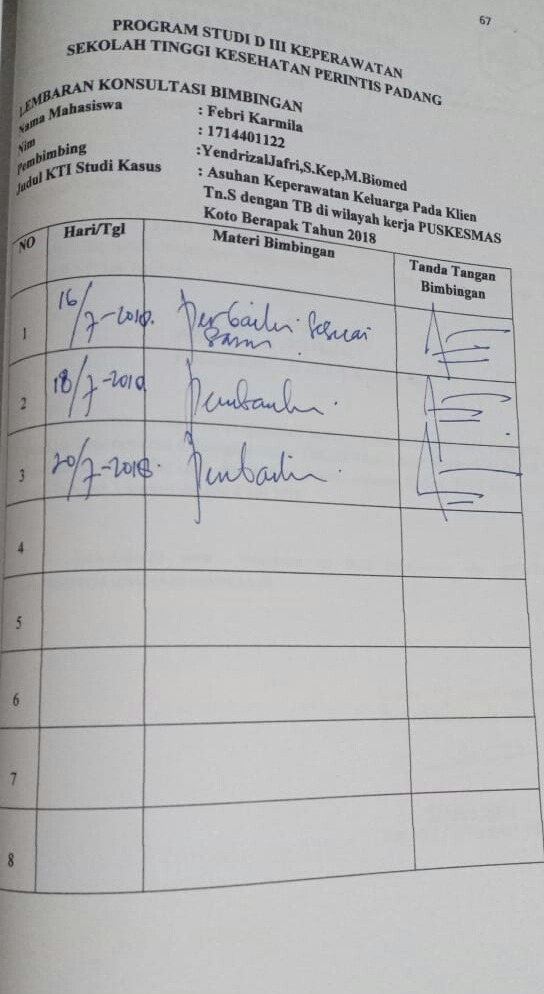 67
PROGRAM STUDI D III KEPERAWATAN
SEKOLAH TINGGI KESEHATAN PERINTIS PADANG
LEMBARAN KONSULTASI BIMBINGAN
Nama Mahasiswa : Febri Karmila
Nim : 1714401122
Pembimbing :YendrizalJafri,S.Kep,M.Biomed
Judul KTI Studi Kasus : Asuhan Keperawatan Keluarga Pada Klien
Tn.S dengan TB di wilayah kerja PUSKESMAS
Koto Berapak Tahun 2018
NO Hari/Tgl Materi Bimbingan Tanda Tangan
Bimbingan
1 16/7-2018. Perbaiki Sesuai
Saran
2 18/7-2018
3 20/7-2018.
4
5
6
7
8